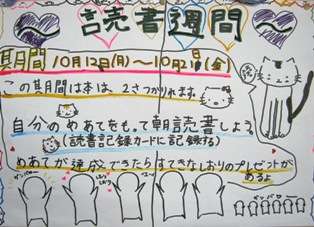 読書週間
期間 10月12日(月)〜10月2日(金)
この期間は本は、2さつかりれます。
自分のめあてをもって朝読書しよう
(読書記録カードに記録する)
めあてが達成できたらすてきなしおりのプレゼントが
あるよ